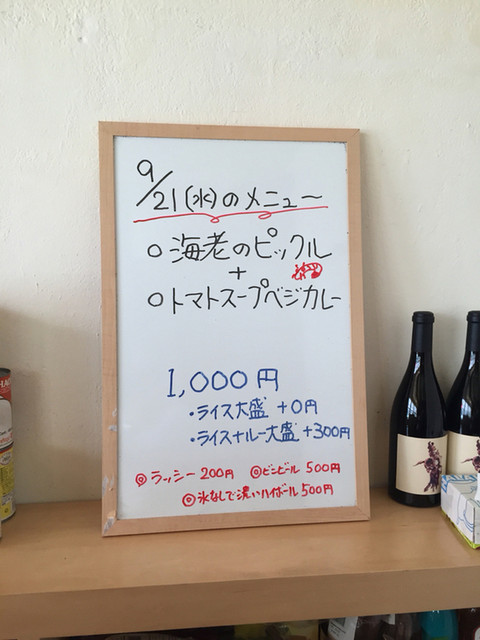 9/21(水)のメニュー
○海老のピックル
+
○トマトスープベジカレー
1,000円
・ライス大盛 +0円
・ライス+ルー大盛 +300円
◎ラッシー200円 ◎ビンビール 500円
◎氷なしで濃いハイボール500円